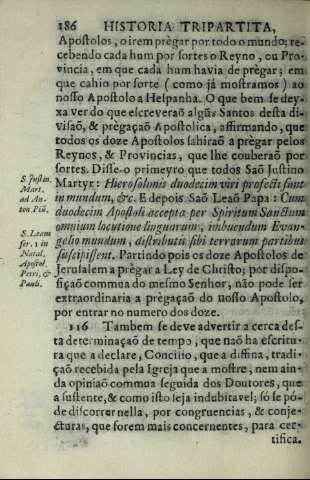 186 HISTORIA TRIPARTITA,
Apostolos, oirem prègar por todo o mundo; re-
cebendo cada hum por sortes o Reyno, ou Pro-
vincia, em que cada hum havia de prègar; em
que cahio por sorte (como já mostramos) ao
nosso Apostolo a Hespanha. O que bem se dey-
xa ver do que escreveraõ algũs Santos desta di-
visaõ, & prègaçaõ Apostolica, affirmando, que
todos os doze Apostolos sahiraõ a prègar pelos
Reynos, & Provincias, que lhe couberaõ por
sortes. Disse-o primeyro que todos Saõ Justino
Martyr: Hierosolimis duodecim viri profecti sunt
in mundum, &c. E depois Saõ Leaõ Papa: Cunt
duodecim Apostoli accepta per Spiritum Sanctum
omnium locutione linguarum, imbuendum Evan-
gelio mundum, distributis sibi terrarum partibus
suscipissent. Partindo pois os doze Apostolos de
Jerusalem a prègar a Ley de Christo; por dispo-
siçaõ commua do mesmo Senhor, não pode ser
extraordinaria a prègaçaõ do nosso Apostolo,
por entrar no numero dos doze.
116 Tambem se deve advertir a cerca des-
ta determinaçaõ de tempo, que naõ ha escritu-
ra que a declare, Concilio, que a diffina, tradi-
çaõ recebida pela Igreja que a mostre, nem ain-
da opiniaõ commua seguida dos Doutores, que
a sustente, & como isto seja indubitavel; só se pó-
de discorrer nella, por congruencias, & conje-
cturas, que forem mais concernentes, para cer-
tifica.
S. Justin.
Mart.
ad An-
ton. Piũ.
S. Leam
ser. 1 in
Natal.
Apostol.
Petri, &
Pauli.